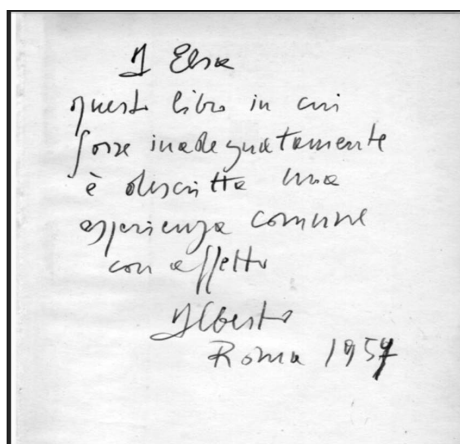 A Elsa
questo libro in cui
forse inadeguatamente
è descritta una
esperienza comune
con affetto
Alberto
Roma 1957